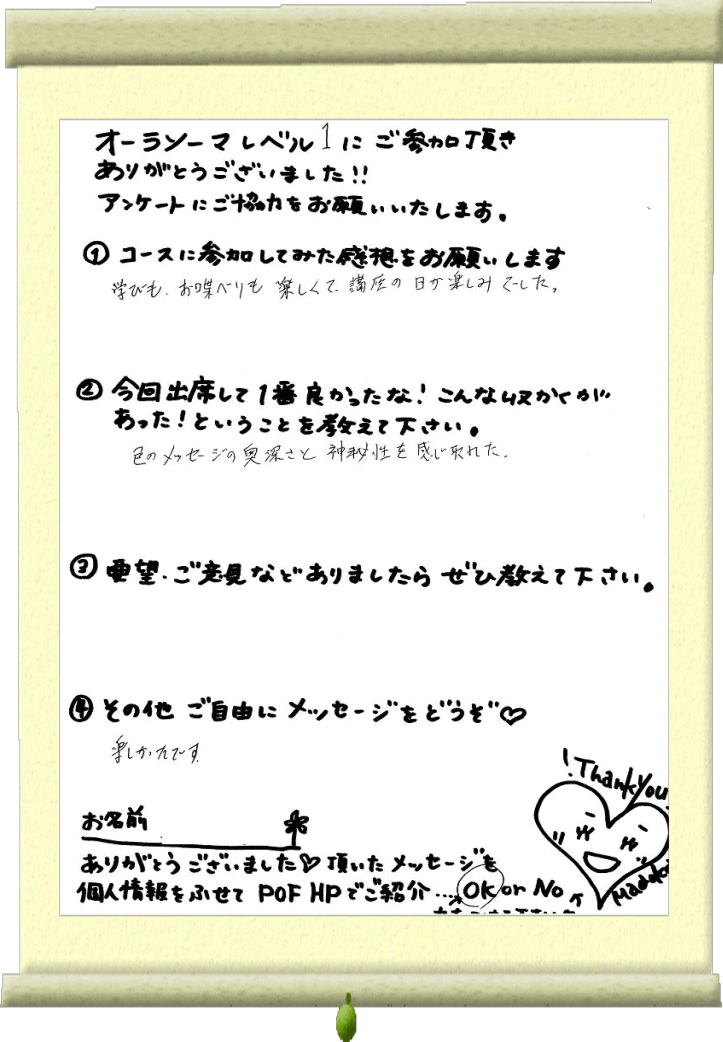 オーラソーマレベル1にご参加頂き
ありがとうございました!!
アンケートにご協力をお願いいたします。
① コースに参加してみた感想をお願いします
学びも、お喋べりも 楽しくて、講座の日が楽しみでした。
② 今回出席して1番良かったな!こんな収かくが
あった!ということを教えて下さい。
色のメッセージの奥深さと 神秘性を感じ取れた。
③ 要望・ご意見などありましたら ぜひ教えて下さい。
④ その他 ご自由に メッセージをどうぞ♡
楽しかったです
!Thank you
お名前
ありがとうございました♡ 頂いたメッセージを
個人情報をふせて POF HPでご紹介…→ OK or No
Madoka